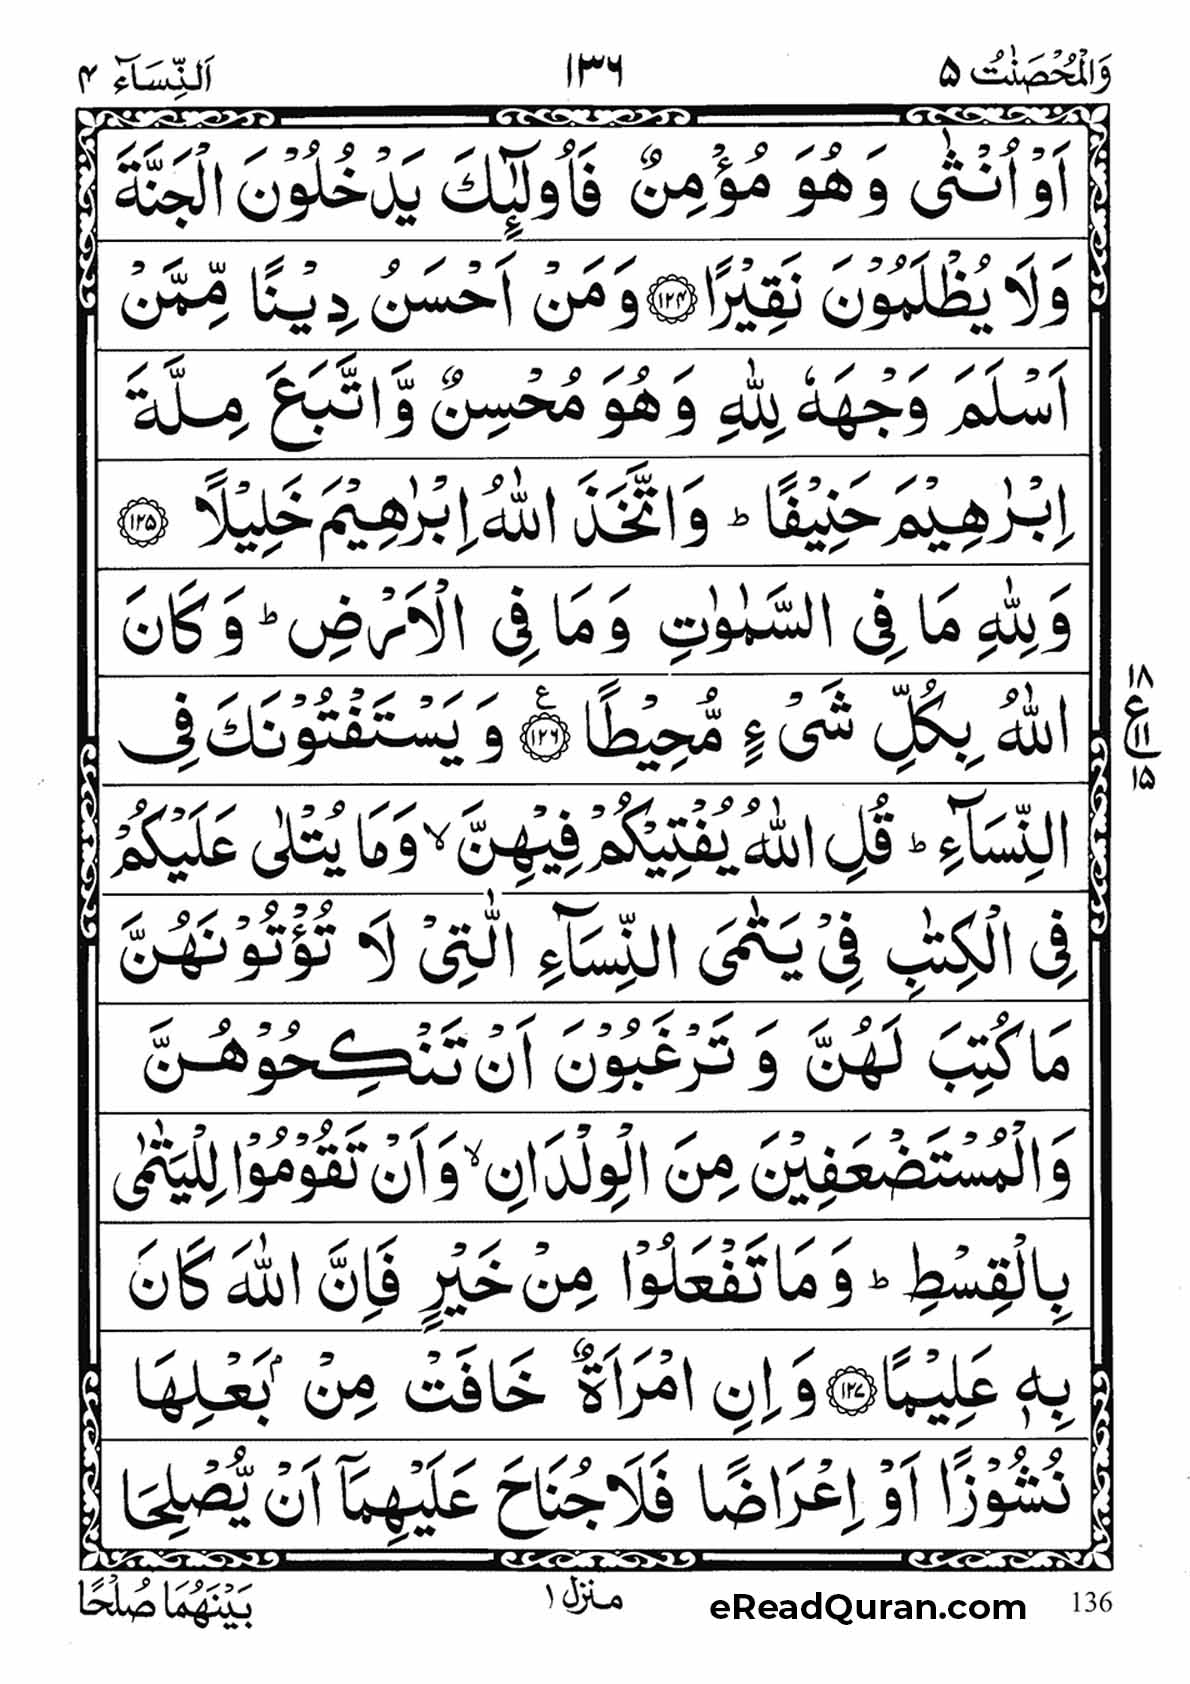 وَالْمُحْصَنٰتُ ۵ ۱۳۶ اَلنِّسَآء ۴
اَوْ اُنْثٰى وَهُوَ مُؤْمِنٌ فَاُولٰٓئِكَ يَدْخُلُوْنَ الْجَنَّةَ
وَلَا يُظْلَمُوْنَ نَقِيْرًا ۱۲۴ وَمَنْ اَحْسَنُ دِيْنًا مِّمَّنْ
اَسْلَمَ وَجْهَهٗ لِلّٰهِ وَهُوَ مُحْسِنٌ وَّاتَّبَعَ مِلَّةَ
اِبْرٰهِيْمَ حَنِيْفًا ؕ وَاتَّخَذَ اللّٰهُ اِبْرٰهِيْمَ خَلِيْلًا ۱۲۵
وَلِلّٰهِ مَا فِى السَّمٰوٰتِ وَمَا فِى الْاَرْضِ ؕ وَكَانَ
اللّٰهُ بِكُلِّ شَىْءٍ مُّحِيْطًا ۱۲۶ ع وَيَسْتَفْتُوْنَكَ فِى
۱۸ ع ۱۱ ۱۵
النِّسَآءِ ؕ قُلِ اللّٰهُ يُفْتِيْكُمْ فِيْهِنَّ ۙ وَمَا يُتْلٰى عَلَيْكُمْ
فِى الْكِتٰبِ فِىْ يَتٰمَى النِّسَآءِ الّٰتِىْ لَا تُؤْتُوْنَهُنَّ
مَا كُتِبَ لَهُنَّ وَتَرْغَبُوْنَ اَنْ تَنْكِحُوْهُنَّ
وَالْمُسْتَضْعَفِيْنَ مِنَ الْوِلْدَانِ ۙ وَاَنْ تَقُوْمُوْا لِلْيَتٰمٰى
بِالْقِسْطِ ؕ وَمَا تَفْعَلُوْا مِنْ خَيْرٍ فَاِنَّ اللّٰهَ كَانَ
بِهٖ عَلِيْمًا ۱۲۷ وَاِنِ امْرَاَةٌ خَافَتْ مِنْۢ بَعْلِهَا
نُشُوْزًا اَوْ اِعْرَاضًا فَلَا جُنَاحَ عَلَيْهِمَآ اَنْ يُّصْلِحَا
بَيْنَهُمَا صُلْحًا
منزل ۱
eReadQuran.com 136